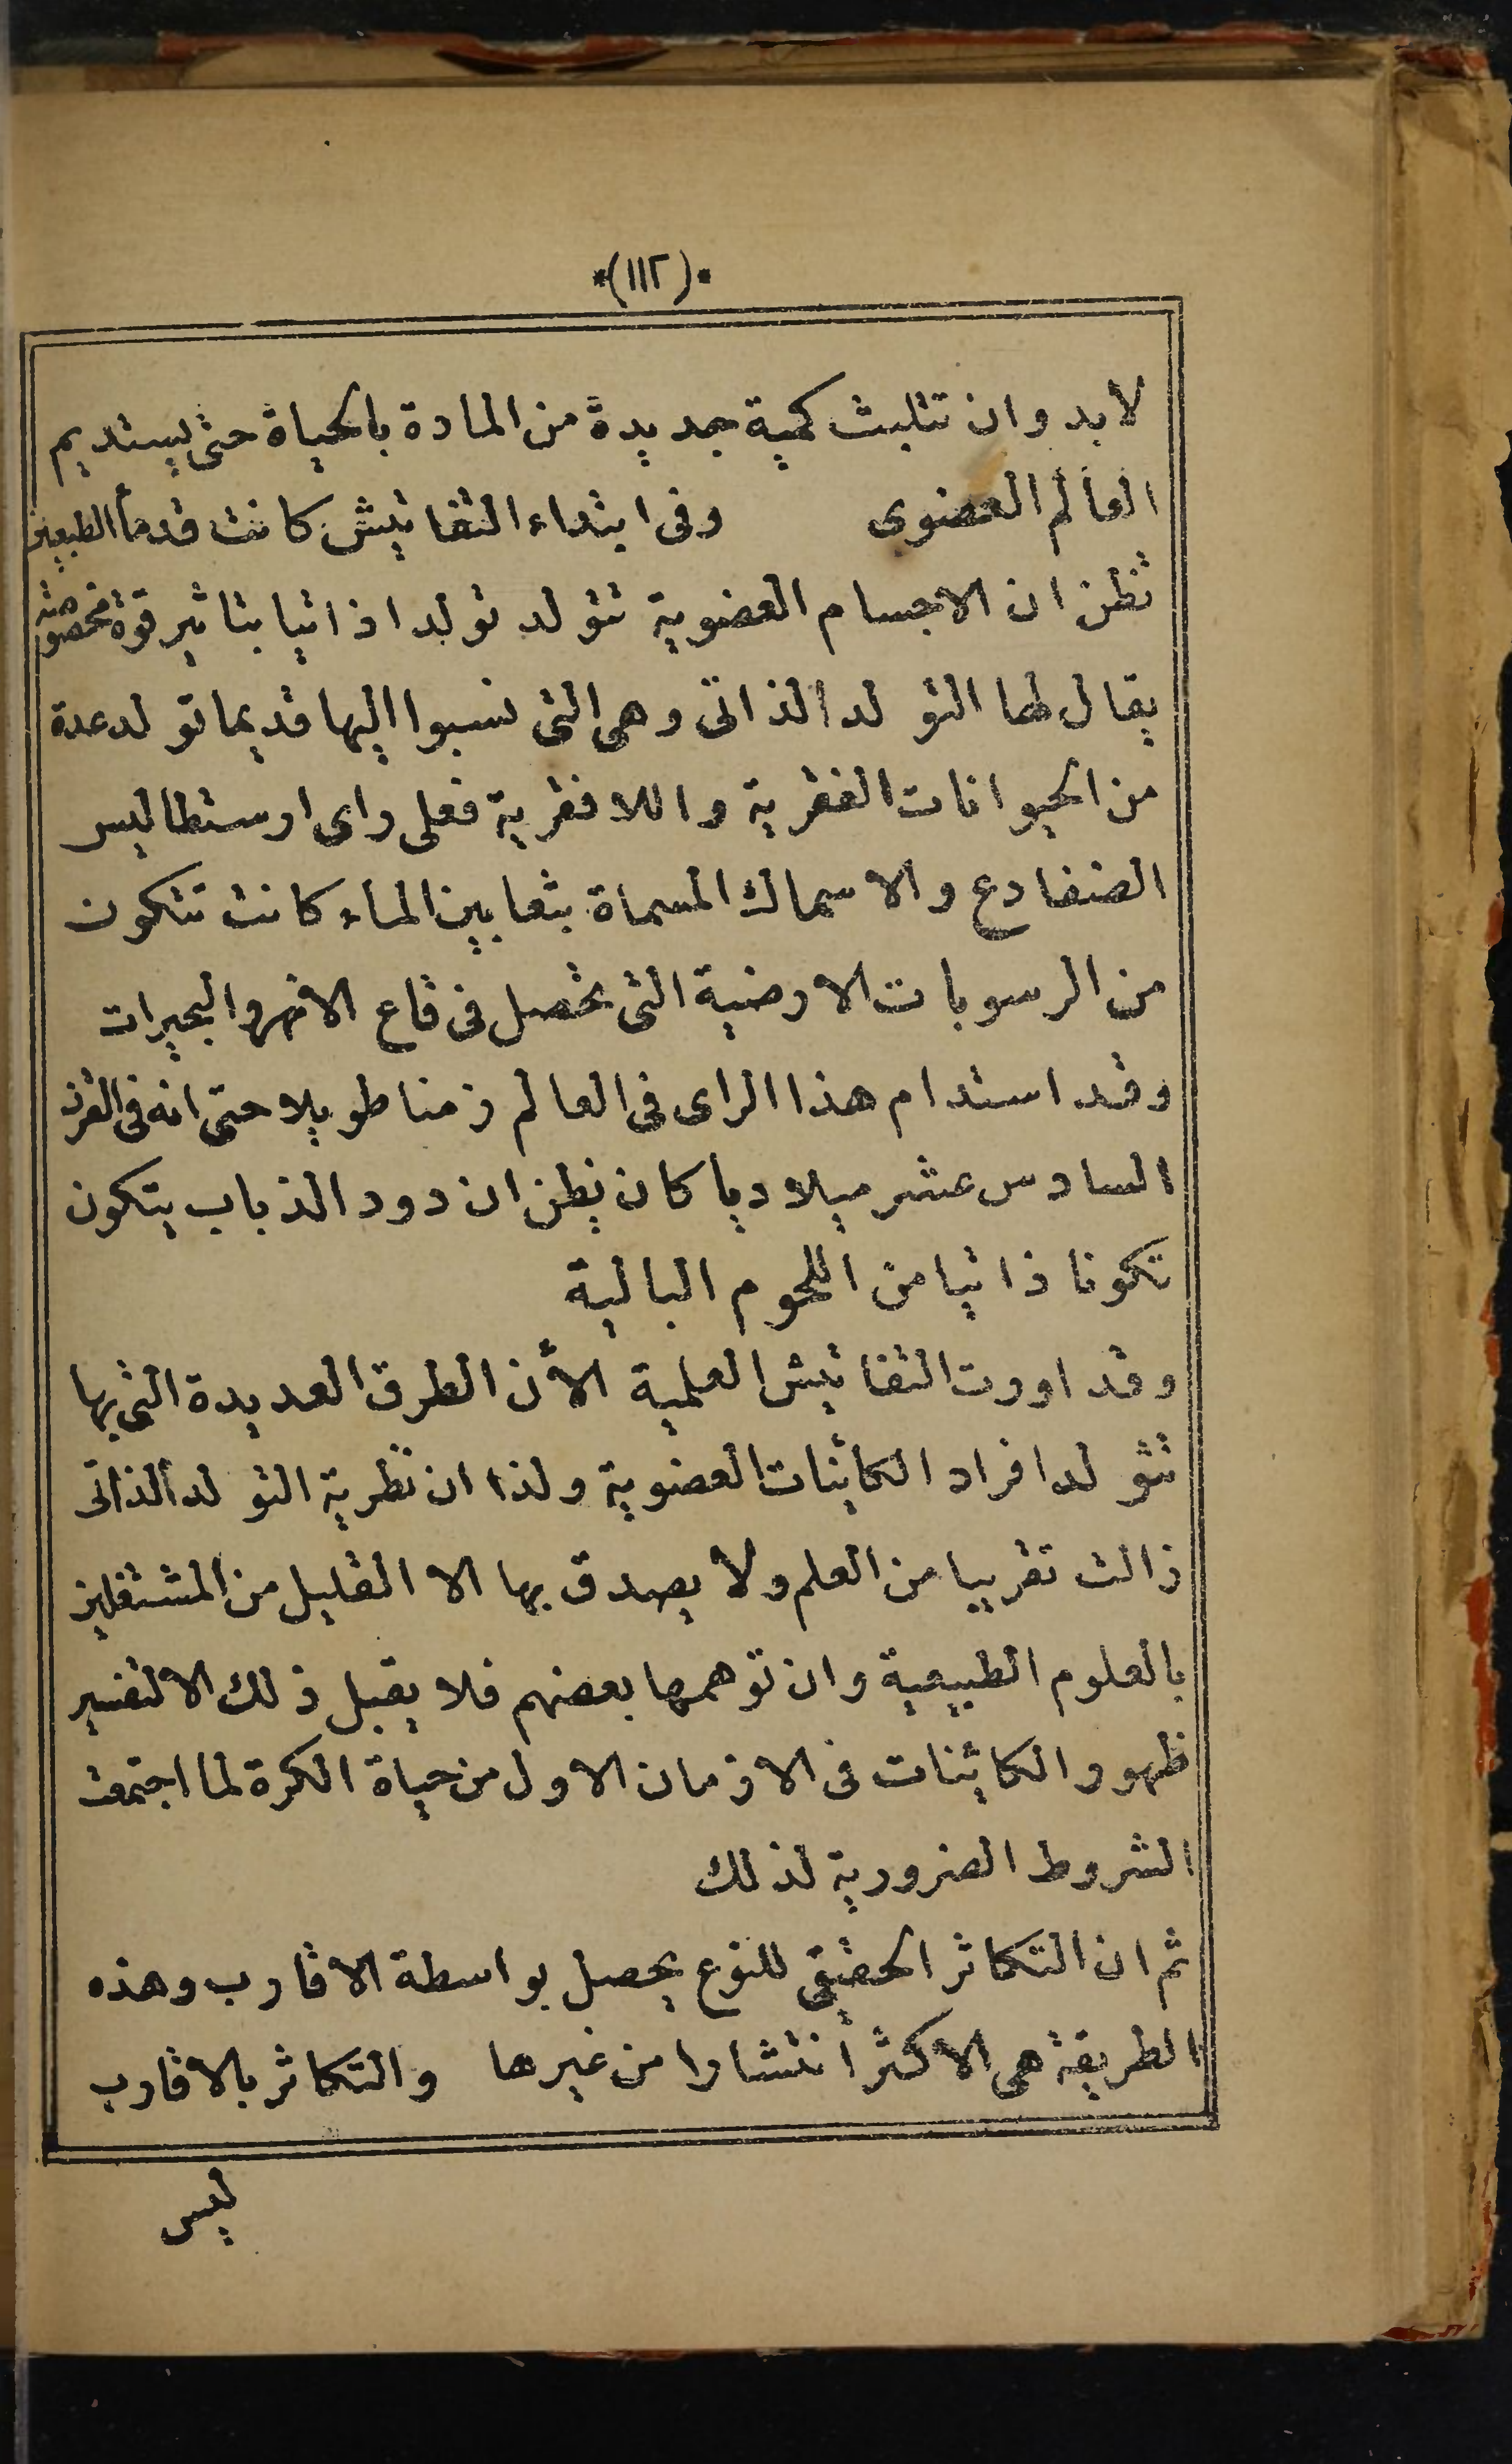 *(١١٢)*
لا بد وان تتلبث كمية جديدة من المادة بالحياة حتى يستديم
العالم العضوى وفى ابتداء التفاتيش كانت قدمأ الطبيعين
تظن ان الاجسام العضوية تتولد تولدا ذاتيا بتاثير قوة مخصوصة
يقال لها التولد الذاتى وهى التى نسبوا اليها قديما تولد عدة
من الحيوانات الفقرية واللافقرية فعلى راى ارستطاليس
الضفادع والاسماك المسماة بثعابين الماء كانت تتكون
من الرسوبات الارضية التى تحصل فى قاع الانهر والبحيرات
وقد استدام هذا الراى فى العالم زمنا طويلا حتى انه فى القرن
السادس عشر ميلاديا كان يظن ان دود الذباب يتكون
تكونا ذاتيا من اللحوم البالية
وقد اورت التفاتيش العلمية الأن الطرق العديدة التى بها
تتولد افراد الكائنات العضوية ولذا ان نظرية التولد الذاتى
زالت تقريبا من العلم ولا يصدق بها الا القليل من المشتغلين
بالعلوم الطبيعية وان توهمها بعضهم فلا يقبل ذلك الا لتفسير
ظهور الكائنات فى الازمان الاول من حياة الكرة لما اجتمعت
الشروط الضرورية لذلك
ثم ان التكاثر الحقيقى للنوع يحصل بواسطة الاقارب وهذه
الطريقة هى الاكثر انتشارا من غيرها والتكاثر بالاقارب
ليس